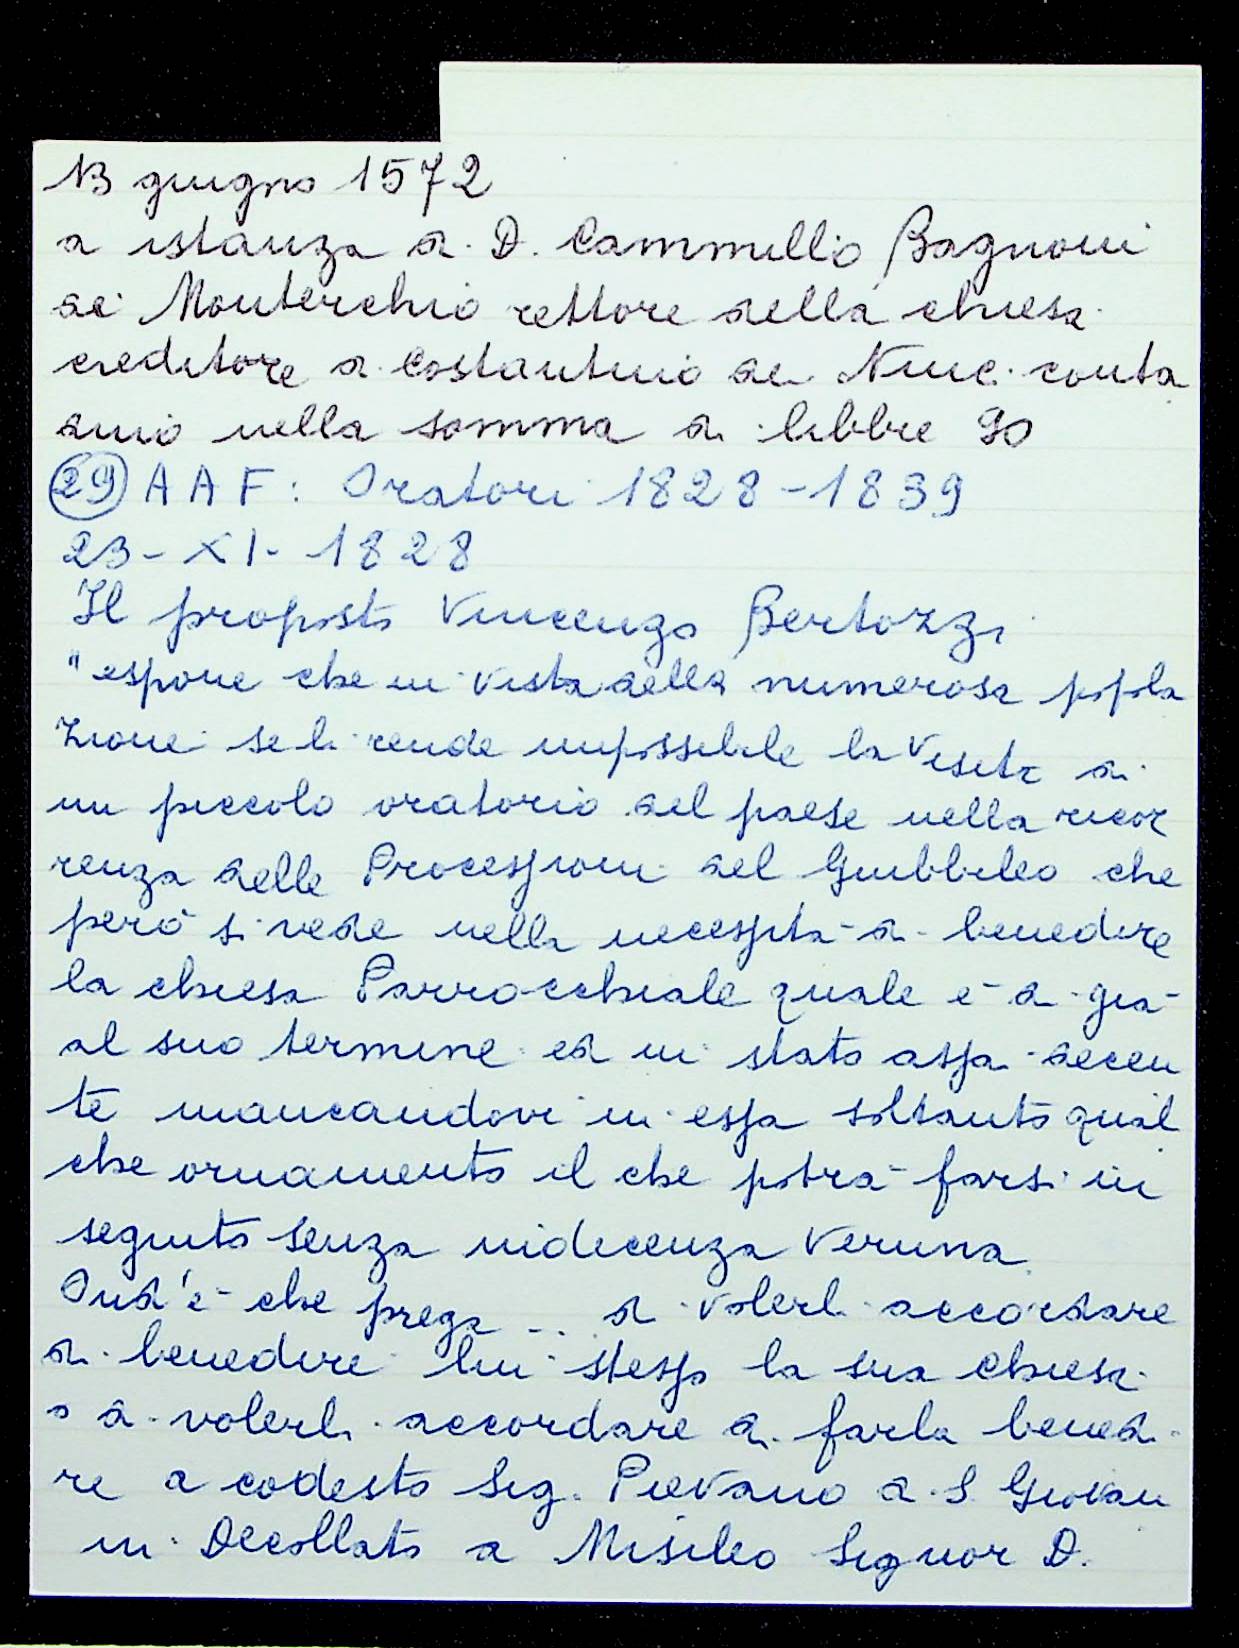 13 giugno 1572
a istanza di D. Cammillo Bagnoni
di Monterchio rettore della chiesa
creditore di Costantino de conta
dino nella somma di libbre 90
(29) AAF: Oratori 1828-1839
23-XI-1828
Il proposto Vincenzo Bertozzi
"espone che in vista della numerosa popola
zione se li rende impossibile la visita di
un piccolo oratorio del paese nella ricor
renza delle Processioni del Giubbileo che
però si vede nella necessità di benedire
la chiesa Parrocchiale quale è di già
al suo termine ed in stato assai decen
te mancandovi in essa soltanto qual
che ornamento il che potrà farsi in
seguito senza indicenza veruna
Ond'è che prega ... di volerli accordare
di benedire lui stesso la sua chiesa
o di volerli accordare di farla benedi
re a codesto Sig. Pievano di S. Giovan
ni Decollato a Misileo Signor D.